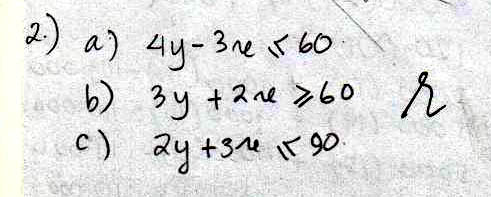 2.) a) 4y - 3x ≤ 60
b) 3y + 2x ≥ 60
c) 2y + 3x ≤ 90